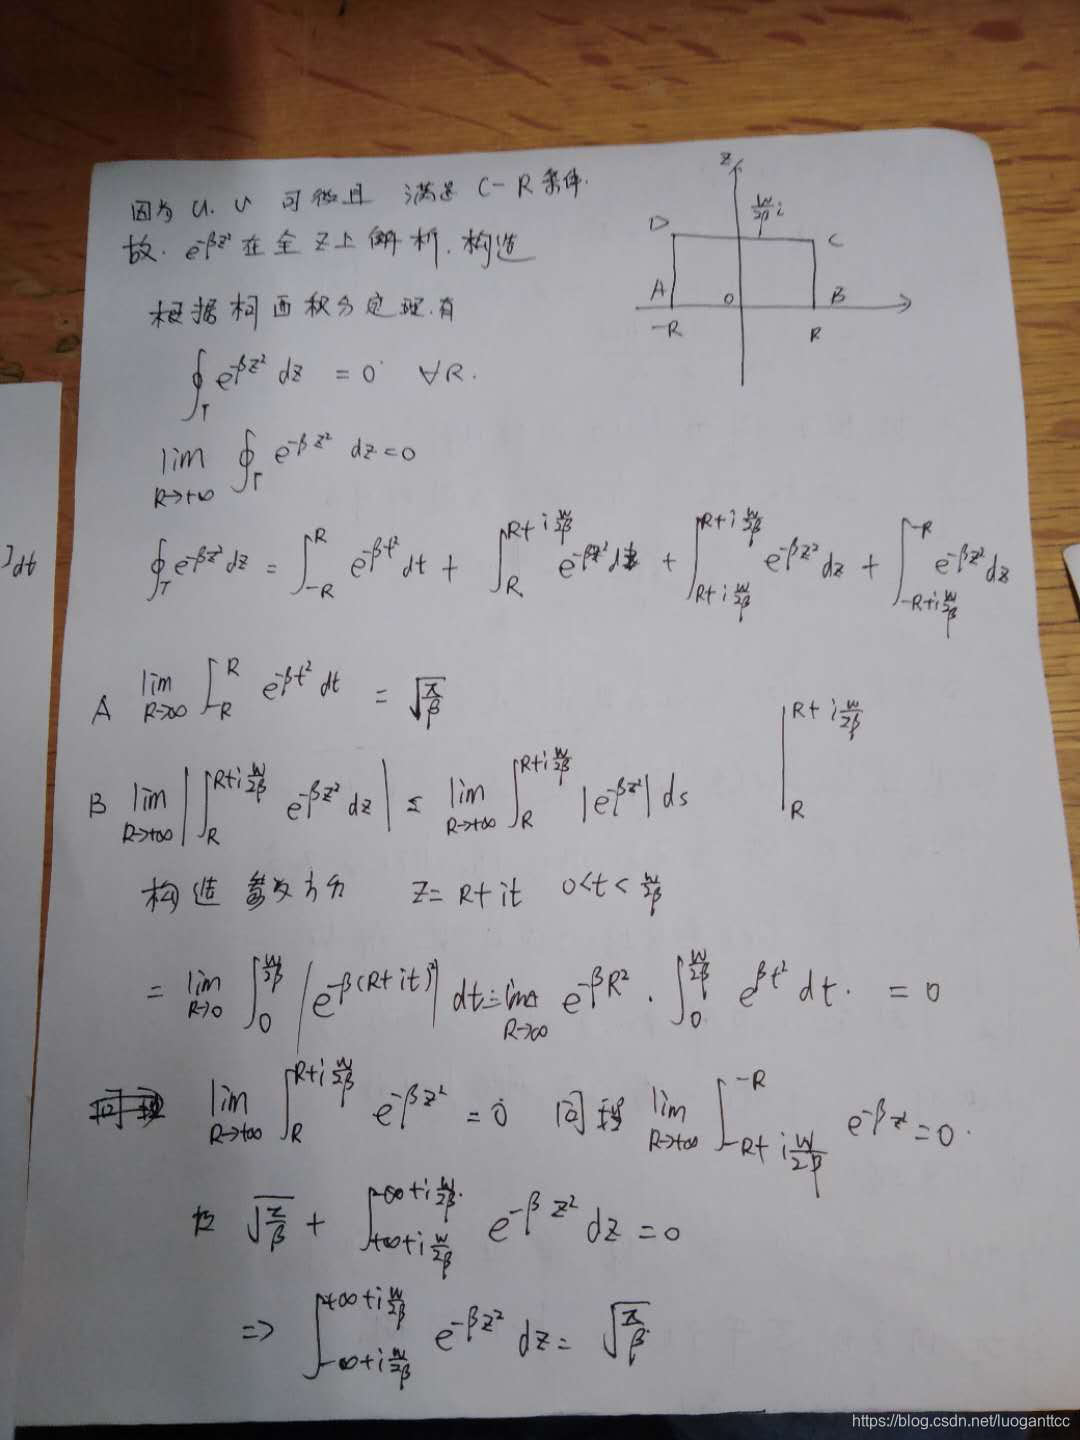 因为 u. v 可微且 满足 C-R条件.
故. e^{-βz²} 在全 z 上解析. 构造
根据柯西积分定理.有
z
w/2β i
D
C
A
0
B
-R
R
∮_Γ e^{-βz²} dz = 0 ∀R.
lim_{R→+∞} ∮_Γ e^{-βz²} dz = 0
∮_Γ e^{-βz²} dz = ∫_{-R}^{R} e^{-βt²} dt + ∫_{R}^{R+i w/2β} e^{-βz²} dz + ∫_{R+i w/2β}^{R+i w/2β} e^{-βz²} dz + ∫_{-R+i w/2β}^{-R} e^{-βz²} dz
]dt
A lim_{R→∞} ∫_{-R}^{R} e^{-βt²} dt = √(π/β)
B lim_{R→+∞} |∫_{R}^{R+i w/2β} e^{-βz²} dz| ≤ lim_{R→+∞} ∫_{R}^{R+i w/2β} |e^{-βz²}| ds
R+i w/2β
R
构造 参数方 z = R+it 0<t< w/2β
= lim_{R→0} ∫_{0}^{w/2β} |e^{-β(R+it)²}| dt = lim_{R→∞} e^{-βR²} · ∫_{0}^{w/2β} e^{βt²} dt. = 0
lim_{R→+∞} ∫_{R}^{R+i w/2β} e^{-βz²} = 0 同理 lim_{R→+∞} ∫_{-R+i w/2β}^{-R} e^{-βz²} = 0.
√(π/β) + ∫_{+∞+i w/2β}^{-∞+i w/2β} e^{-βz²} dz = 0
=> ∫_{-∞+i w/2β}^{+∞+i w/2β} e^{-βz²} dz = √(π/β)
https://blog.csdn.net/luoganttcc